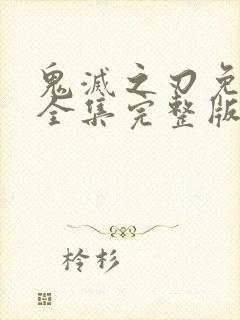 鬼滅之刃免
全集完整版
柃杉